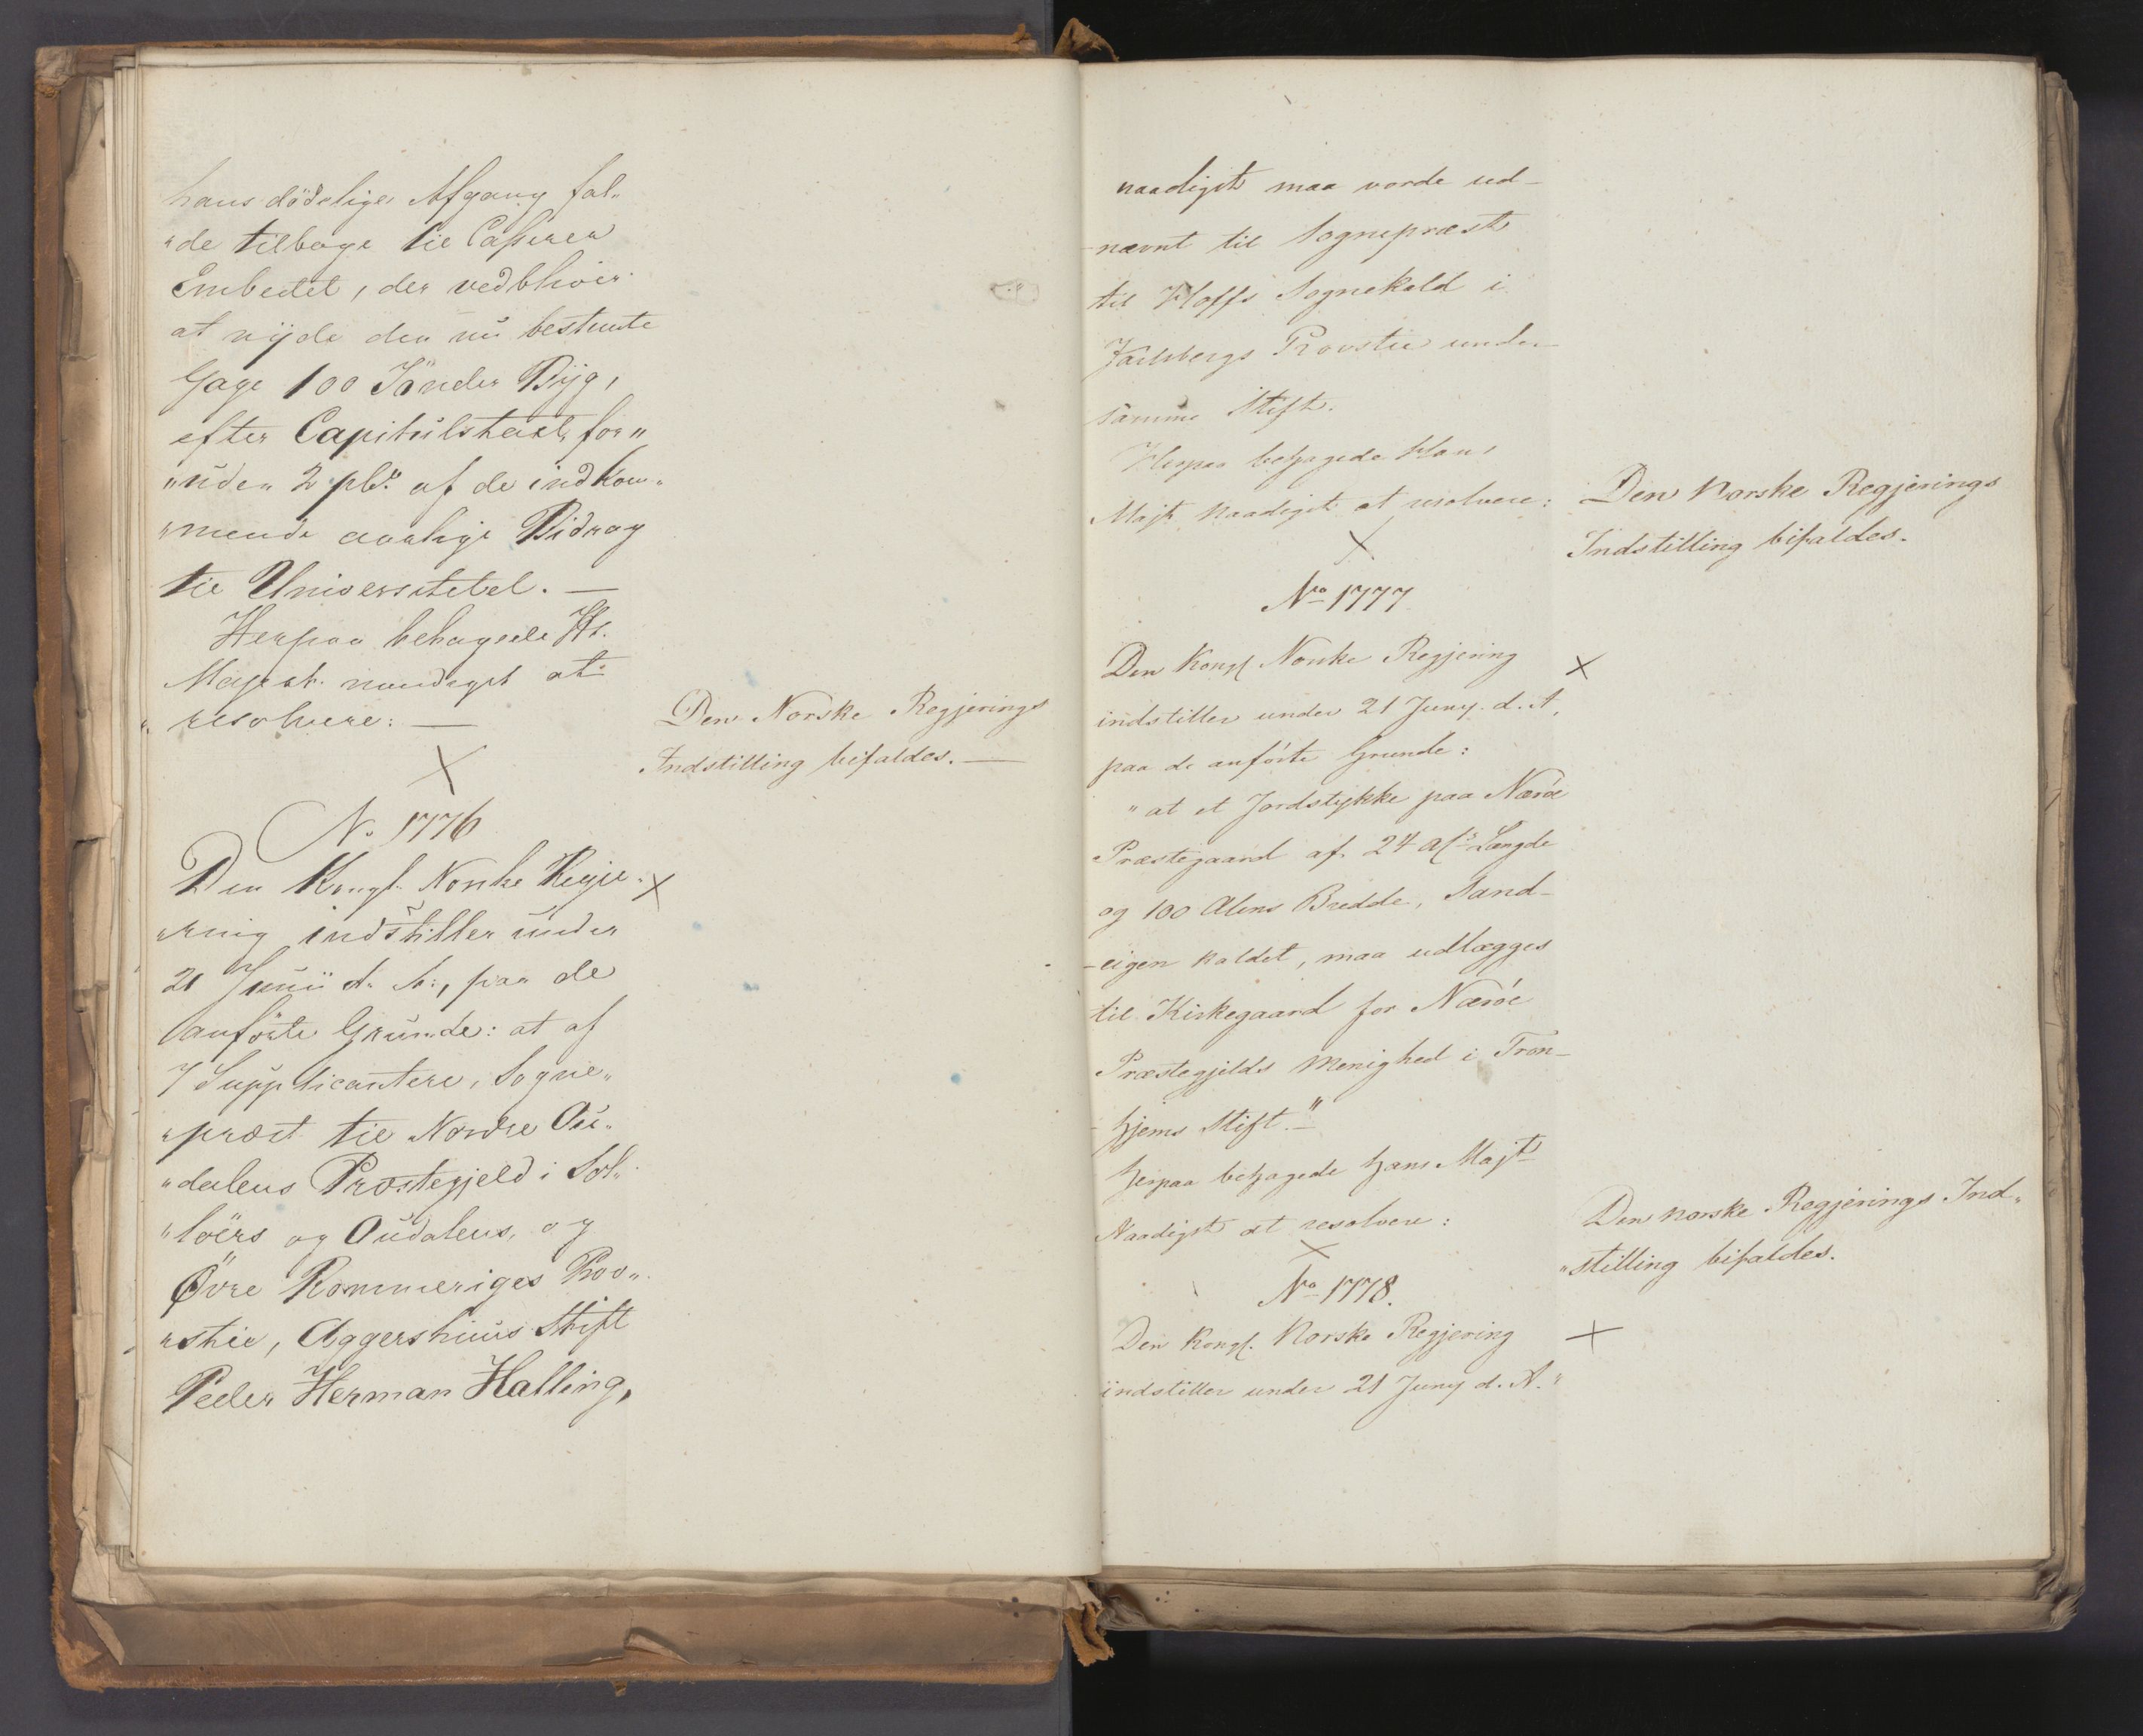 hans dödelige Afgang fal„
„de tilbage til Casserer
Embedet, der vedbliver
at nyde den nu bestemte
Gage 100 Tönder Byg,
efter Capitulstaxt, for„
„uden 2 pCt. af de indkom„
„mende aarlige Bidrag
til Universitetet. —
Herpaa behagede Hs.
Majest. naadigst at
resolvere: —
Den Norske Regjerings
Indstilling bifaldes. —
N. 1776
Den Kongl. Norske Regje„
„ring indstiller under
21 Junii d. A., paa de
anförte Grunde: at af
7 Supplicantere, Sogne„
„præst til Nordre Ou„
„dalens Præstegjeld i Sol„
„löers og Oudalens, og
Övre Rommeriges Prov„
„stie, Aggershuus Stift
Peder Herman Halling,
naadigst maa vorde ud-
-nævnt til Sognepræst
til Hoffs Sognekald i
Jarlsbergs Provstie under
samme Stift.
Herpaa behagede Hans
Majt naadigst at resolvere:
Den norske Regjerings
Indstilling bifaldes.
No 1777
Den Kongl Norske Regjering
indstiller under 21 Juny d. A,
paa de anförte Grunde:
"at et Jordstykke paa Næröe
Præstegaard af 24 Al: Længde
og 100 Alens Bredde, Sand-
-eigen kaldet, maa udlægges
til Kirkegaard for Næröe
Præstegjelds Menighed i Tron-
-hjems Stift."
Herpaa behagede Hans Majt
Naadigst at resolvere:
Den norske Regjerings Ind„
„stilling bifaldes.
No 1778.
Den Kongl. Norske Regjering
indstiller under 21 Juny d. A.